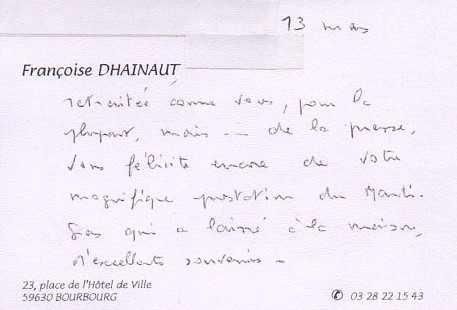 13 mars
Françoise DHAINAUT
retraitée comme vous, pour la
plupart, mais -- de la presse,
vous félicite encore de votre
magnifique prestation du Mardi-
Gras qui a laissé à la maison,
d'excellents souvenirs -
23, place de l'Hôtel de Ville
59630 BOURBOURG
✆ 03 28 22 15 43